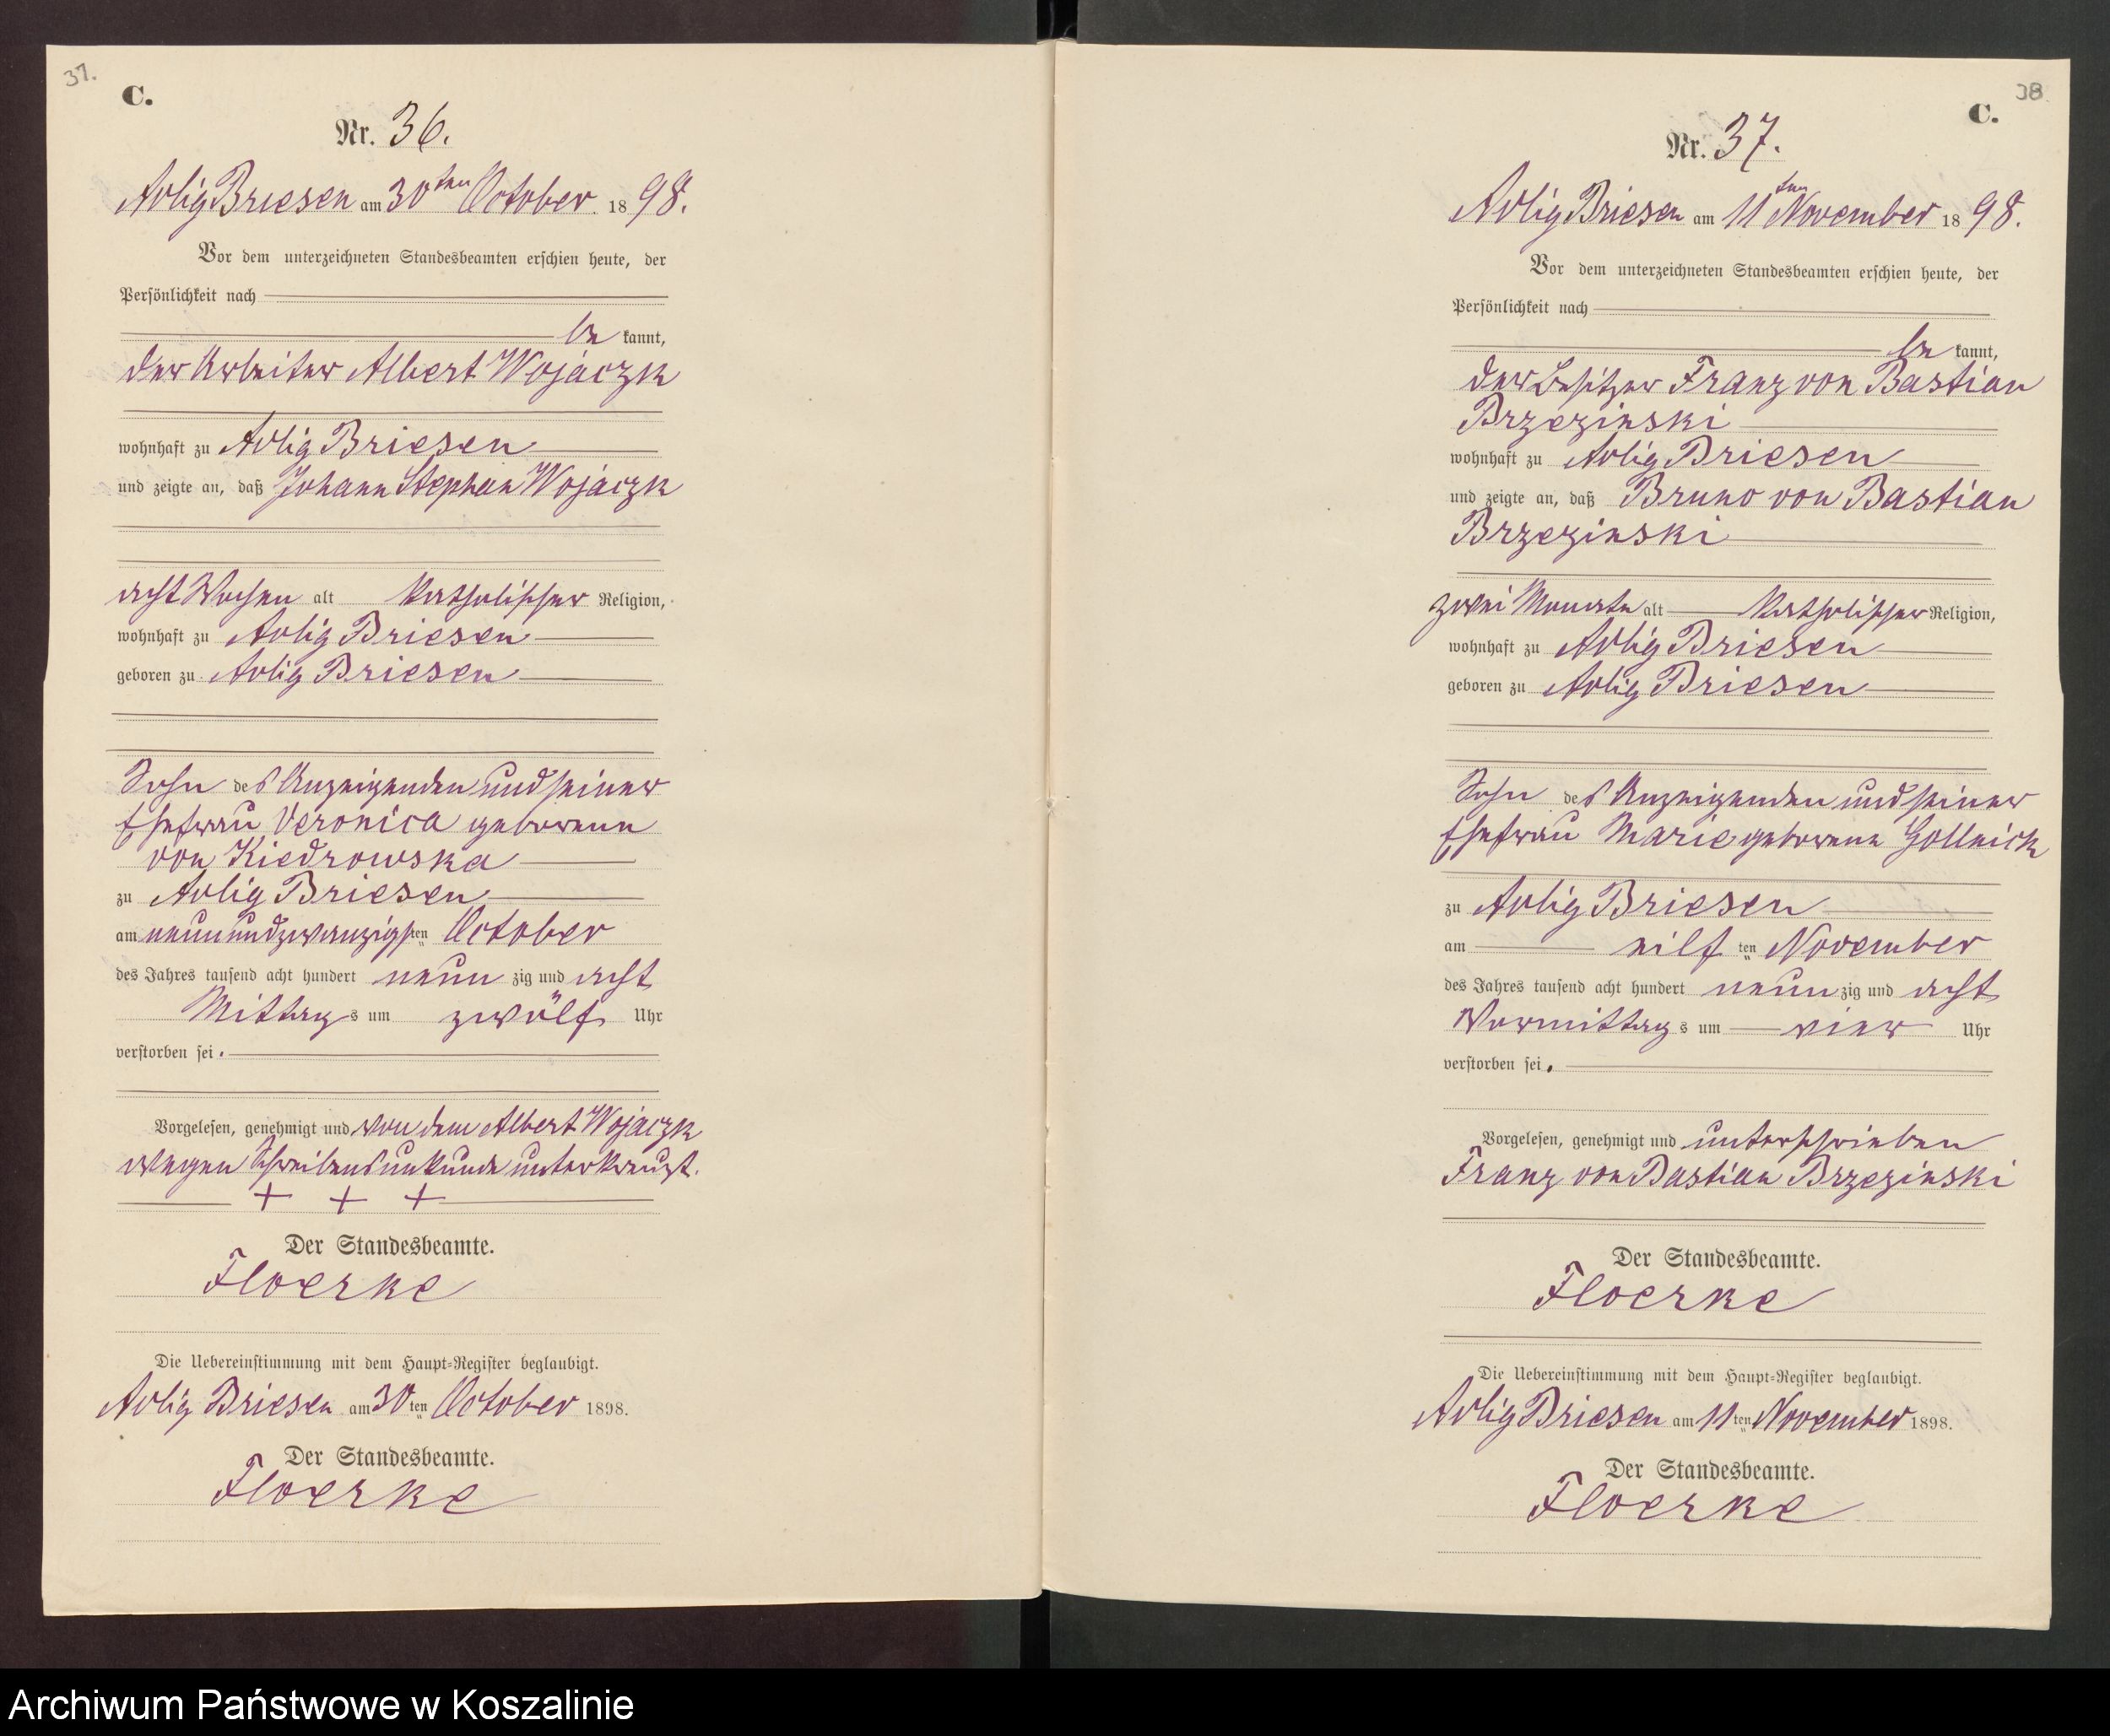 37.
C.
Nr. 36.
Adlig Briesen am 30ten October 1898.
Vor dem unterzeichneten Standesbeamten erschien heute, der
Persönlichkeit nach
be kannt,
der Arbeiter Albert Wojaczk
wohnhaft zu Adlig Briesen
und zeigte an, daß Johann Stephan Wojaczk
acht Wochen alt katholischer Religion,
wohnhaft zu Adlig Briesen
geboren zu Adlig Briesen
Sohn des Anzeigenden und seiner
Ehefrau Veronica geborene
von Kiedrowska
zu Adlig Briesen
am neunundzwanzigsten October
des Jahres tausend acht hundert neun zig und acht
Mittags um zwölf Uhr
verstorben sei.
Vorgelesen, genehmigt und von dem Albert Wojaczk
wegen Schreibensunkunde unterkreuzt.
+ + +
Der Standesbeamte.
Floerke
Die Uebereinstimmung mit dem Haupt-Register beglaubigt.
Adlig Briesen am 30ten October 1898.
Der Standesbeamte.
Floerke
38
C.
Nr. 37.
Adlig Briesen am 11ten November 1898.
Vor dem unterzeichneten Standesbeamten erschien heute, der
Persönlichkeit nach
be kannt,
der Besitzer Franz von Bastian
Brzezinski
wohnhaft zu Adlig Briesen
und zeigte an, daß Bruno von Bastian
Brzezinski
zwei Monate alt katholischer Religion,
wohnhaft zu Adlig Briesen
geboren zu Adlig Briesen
Sohn des Anzeigenden und seiner
Ehefrau Marie geborene Gollnick
zu Adlig Briesen
am eilften November
des Jahres tausend acht hundert neunzig und acht
Vormittags um vier Uhr
verstorben sei.
Vorgelesen, genehmigt und unterschrieben
Franz von Bastian Brzezinski
Der Standesbeamte.
Floerke
Die Uebereinstimmung mit dem Haupt-Register beglaubigt.
Adlig Briesen am 11ten November 1898.
Der Standesbeamte.
Floerke
Archiwum Państwowe w Koszalinie